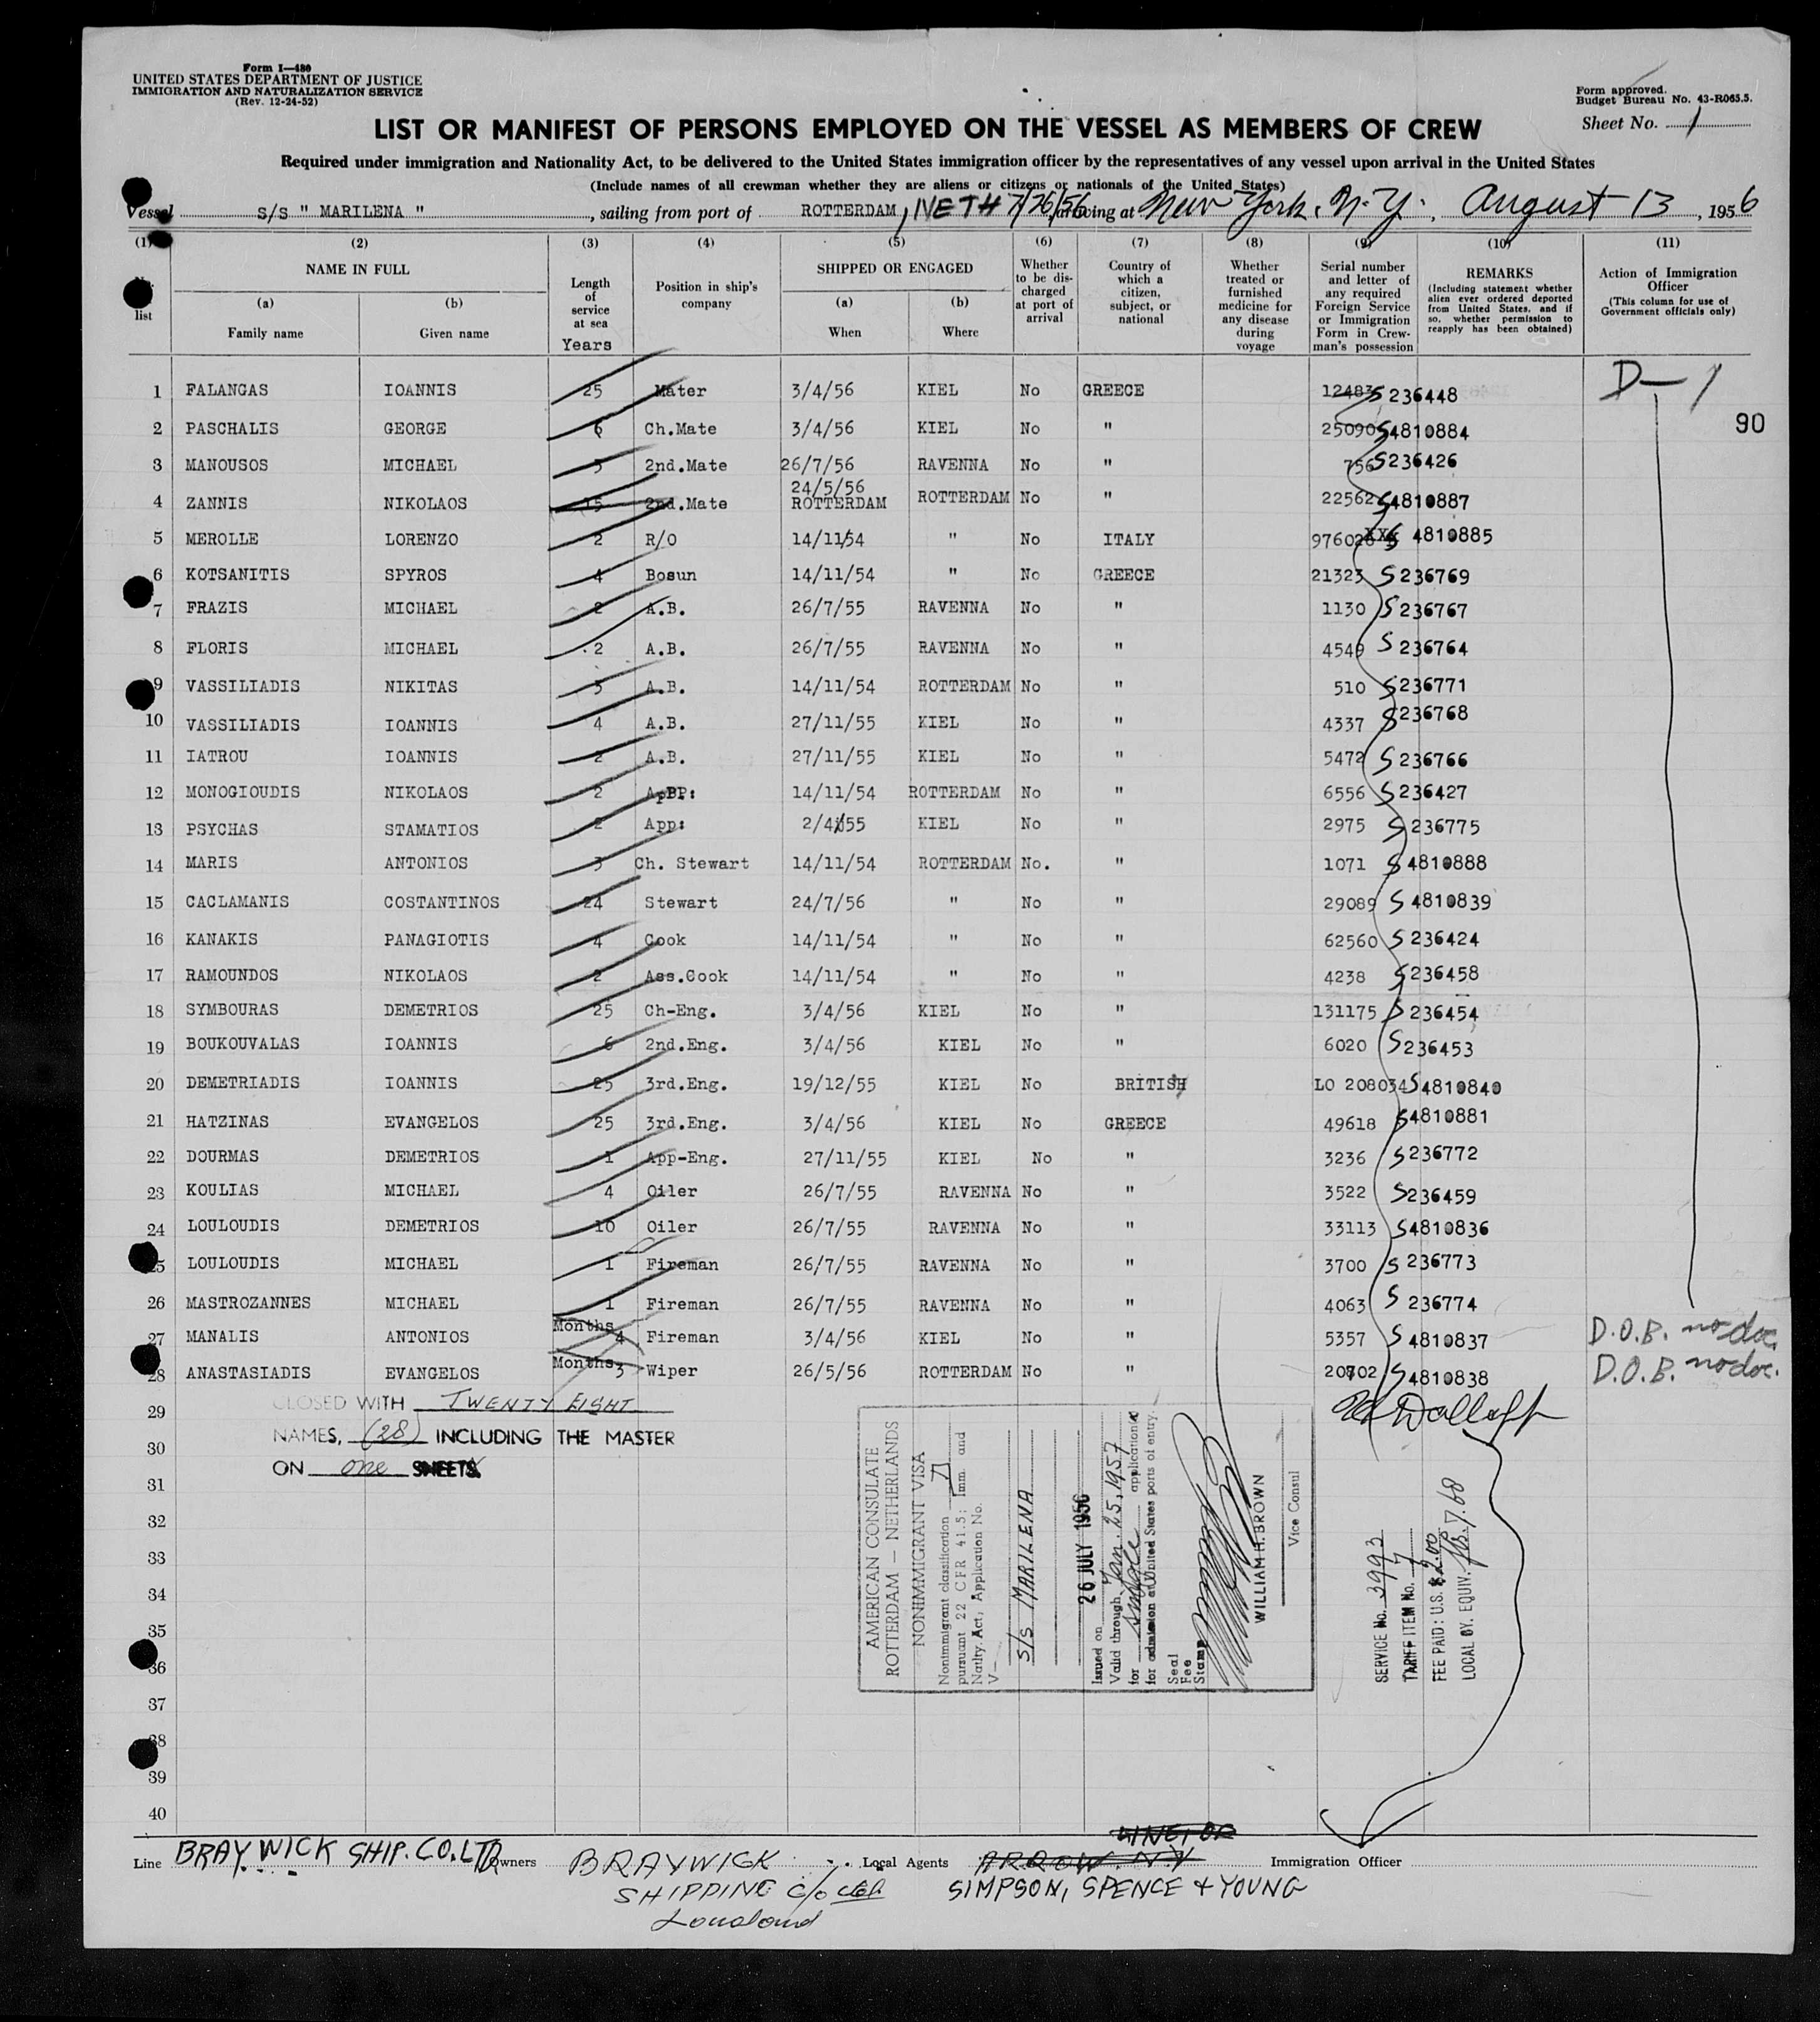 Form I—480
UNITED STATES DEPARTMENT OF JUSTICE
IMMIGRATION AND NATURALIZATION SERVICE
(Rev. 12-24-52)
Form approved.
Budget Bureau No. 43-R065.5.
Sheet No. 1
LIST OR MANIFEST OF PERSONS EMPLOYED ON THE VESSEL AS MEMBERS OF CREW
Required under immigration and Nationality Act, to be delivered to the United States immigration officer by the representatives of any vessel upon arrival in the United States
(Include names of all crewman whether they are aliens or citizens or nationals of the United States)
Vessel S/S " MARILENA ", sailing from port of ROTTERDAM, NETH 7/26/56, arriving at New York, N.Y., August 13, 1956
(1) (2) (3) (4) (5) (6) (7) (8) (9) (10) (11)
No. list
NAME IN FULL
(a) Family name
(b) Given name
Length of service at sea
Years
Position in ship's company
SHIPPED OR ENGAGED
(a) When
(b) Where
Whether to be discharged at port of arrival
Country of which a citizen, subject, or national
Whether treated or furnished medicine for any disease during voyage
Serial number and letter of any required Foreign Service or Immigration Form in Crewman's possession
REMARKS
(Including statement whether alien ever ordered deported from United States, and if so, whether permission to reapply has been obtained)
Action of Immigration Officer
(This column for use of Government officials only)
1 FALANGAS IOANNIS 25 Mater 3/4/56 KIEL No GREECE 12483 S 236448 D—1
90
2 PASCHALIS GEORGE 6 Ch.Mate 3/4/56 KIEL No " 25090 S4810884
3 MANOUSOS MICHAEL 5 2nd.Mate 26/7/56 RAVENNA No " 756 S236426
4 ZANNIS NIKOLAOS 15 2nd.Mate 24/5/56 ROTTERDAM ROTTERDAM No " 22562 S4810887
5 MEROLLE LORENZO 2 R/O 14/11/54 " No ITALY 97602 4810885
6 KOTSANITIS SPYROS 4 Bosun 14/11/54 " No GREECE 21323 S236769
7 FRAZIS MICHAEL 2 A.B. 26/7/55 RAVENNA No " 1130 S236767
8 FLORIS MICHAEL 2 A.B. 26/7/55 RAVENNA No " 4549 S 236764
9 VASSILIADIS NIKITAS 3 A.B. 14/11/54 ROTTERDAM No " 510 S236771
10 VASSILIADIS IOANNIS 4 A.B. 27/11/55 KIEL No " 4337 S236768
11 IATROU IOANNIS 2 A.B. 27/11/55 KIEL No " 5472 S 236766
12 MONOGIOUDIS NIKOLAOS 2 App: 14/11/54 ROTTERDAM No " 6556 S236427
13 PSYCHAS STAMATIOS 2 App: 2/4/55 KIEL No " 2975 S 236775
14 MARIS ANTONIOS 3 Ch. Stewart 14/11/54 ROTTERDAM No. " 1071 S4810888
15 CACLAMANIS COSTANTINOS 24 Stewart 24/7/56 " No " 29089 S 4810839
16 KANAKIS PANAGIOTIS 4 Cook 14/11/54 " No " 62560 S 236424
17 RAMOUNDOS NIKOLAOS 2 Ass.Cook 14/11/54 " No " 4238 S236458
18 SYMBOURAS DEMETRIOS 25 Ch-Eng. 3/4/56 KIEL No " 131175 S 236454
19 BOUKOUVALAS IOANNIS 6 2nd.Eng. 3/4/56 KIEL No " 6020 S236453
20 DEMETRIADIS IOANNIS 25 3rd.Eng. 19/12/55 KIEL No BRITISH LO 208034 S4810840
21 HATZINAS EVANGELOS 25 3rd.Eng. 3/4/56 KIEL No GREECE 49618 S4810881
22 DOURMAS DEMETRIOS 1 App-Eng. 27/11/55 KIEL No " 3236 S236772
23 KOULIAS MICHAEL 4 Oiler 26/7/55 RAVENNA No " 3522 S236459
24 LOULOUDIS DEMETRIOS 10 Oiler 26/7/55 RAVENNA No " 33113 S4810836
25 LOULOUDIS MICHAEL 1 Fireman 26/7/55 RAVENNA No " 3700 S 236773
26 MASTROZANNES MICHAEL 1 Fireman 26/7/55 RAVENNA No " 4063 S 236774
27 MANALIS ANTONIOS Months 4 Fireman 3/4/56 KIEL No " 5357 S 4810837 D.O.B. no doc.
28 ANASTASIADIS EVANGELOS Months 3 Wiper 26/5/56 ROTTERDAM No " 20802 S4810838 D.O.B. no doc.
29
CLOSED WITH TWENTY EIGHT
NAMES, (28) INCLUDING THE MASTER
ON one SHEETS
30
31
32
33
34
35
36
37
38
39
40
AMERICAN CONSULATE
ROTTERDAM — NETHERLANDS
NONIMMIGRANT VISA
Nonimmigrant classification D
pursuant 22 CFR 41.5; Imm. and
Natlty. Act, Application No.
V—
S/S MARILENA
Issued on 26 JULY 1956
Valid through Jan. 25, 1957
for single application
for admission at United States ports of entry.
Seal
Fee
Stamp
WILLIAM H. BROWN
Vice Consul
SERVICE No. 3993
TARIFF ITEM No. 7
FEE PAID: U.S. $2.00
LOCAL CY. EQUIV. fls. 7.60
Line BRAYWICK SHIP. CO. LTD Owners BRAYWICK SHIPPING c/o Ltd Local Agents ARROW. N.Y Immigration Officer
SIMPSON, SPENCE & YOUNG